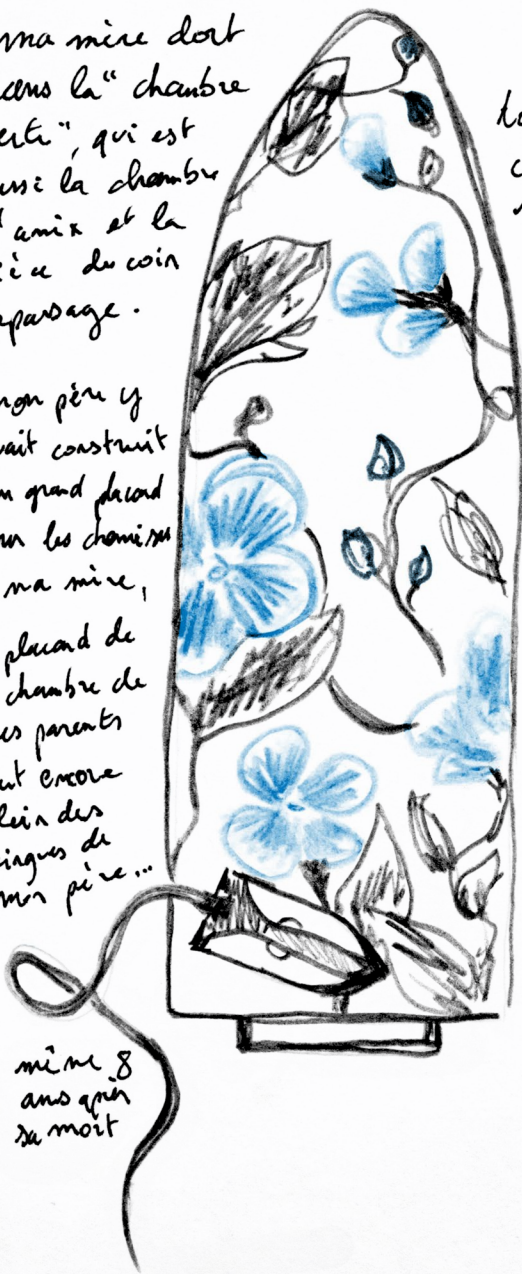 ma mère dort
dans la "chambre
verte", qui est
aussi la chambre
d'amix et la
pièce du coin
repassage.
mon père y
avait construit
un grand placard
pour les chemises
de ma mère,
placard de
chambre de
mes parents
encore
plein des
fringues de
mon père...
même 8
ans après
sa mort